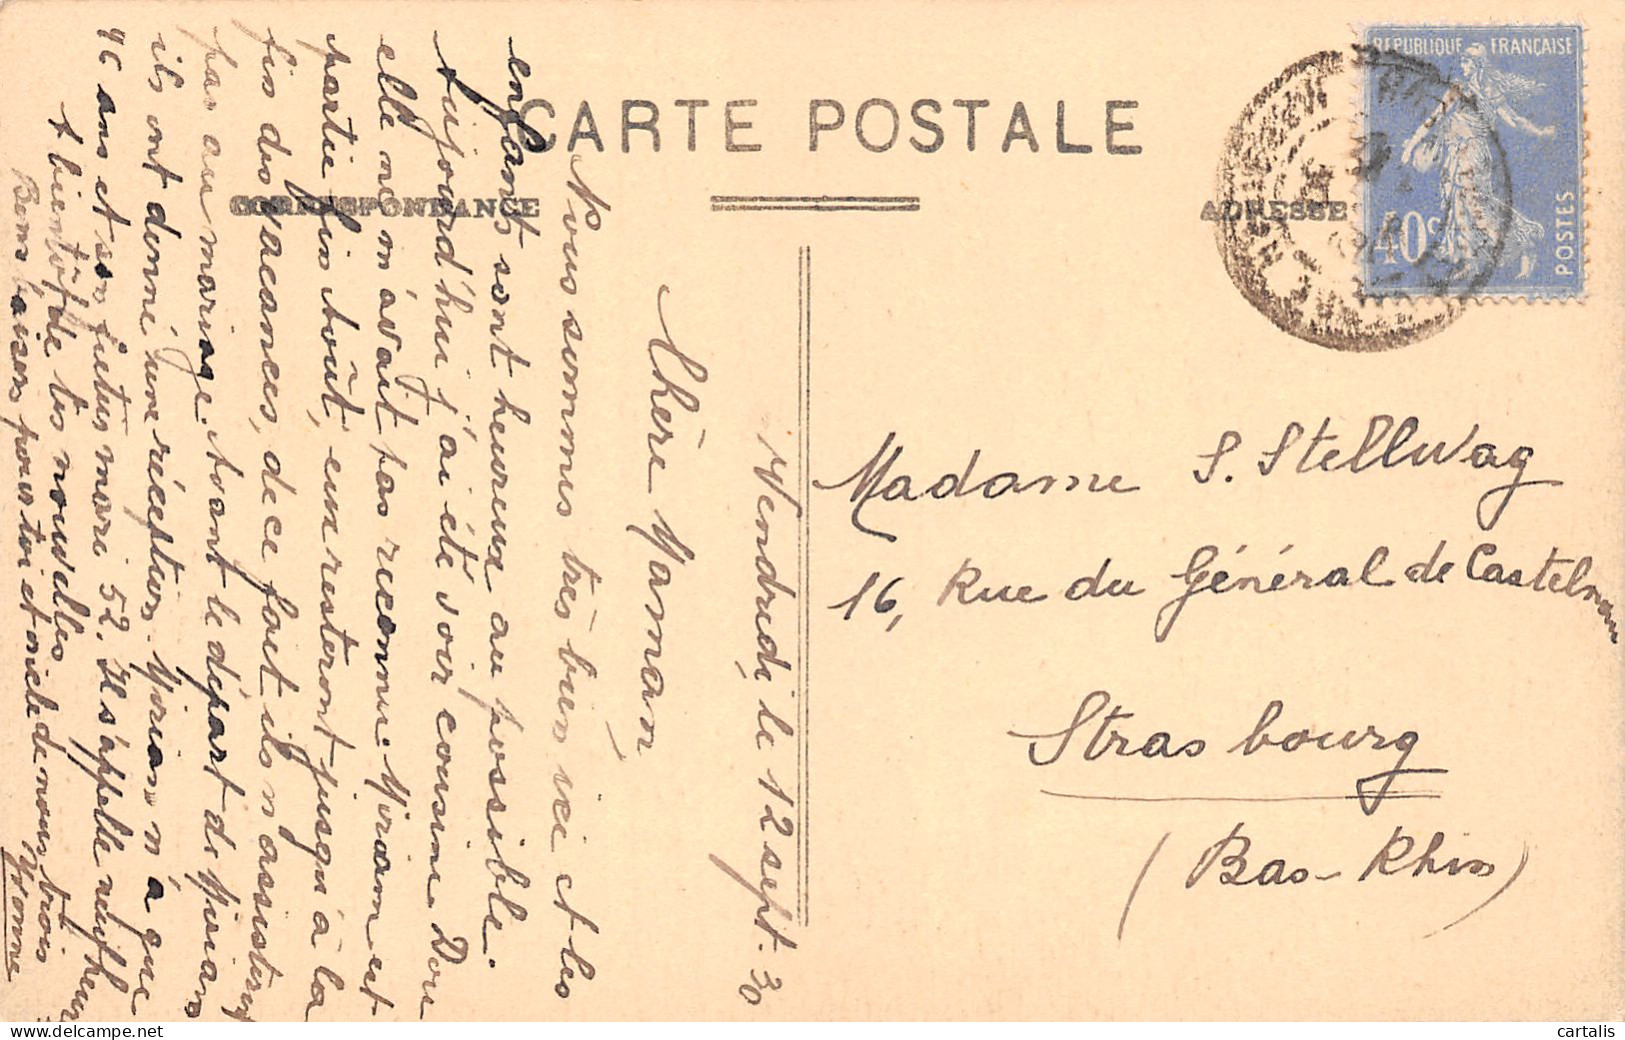 CARTE POSTALE
CORRESPONDANCE
ADRESSE
REPUBLIQUE FRANÇAISE
40c
POSTES
Vendredi le 12 sept. 30
Chère Maman
Nous sommes très bien ici et les
enfants sont heureux au possible.
Aujourd'hui j'ai été voir cousine Dou
elle ne m'avait pas reconnue. Myriam est
partie fin août, eux resteront jusqu'à la
fin des vacances, de ce fait ils n'assistent
pas au mariage. Avant le départ de Myriam
ils ont donné une réception. Myriam n'a que
ans et son futur mari 52. Il s'appelle
A bientôt de tes nouvelles
Bons baisers pour toi et oncle de nous trois
Yvonne
Madame S. Stellwag
16, Rue du Général de Castelnau
Strasbourg
(Bas-Rhin)
cartalis